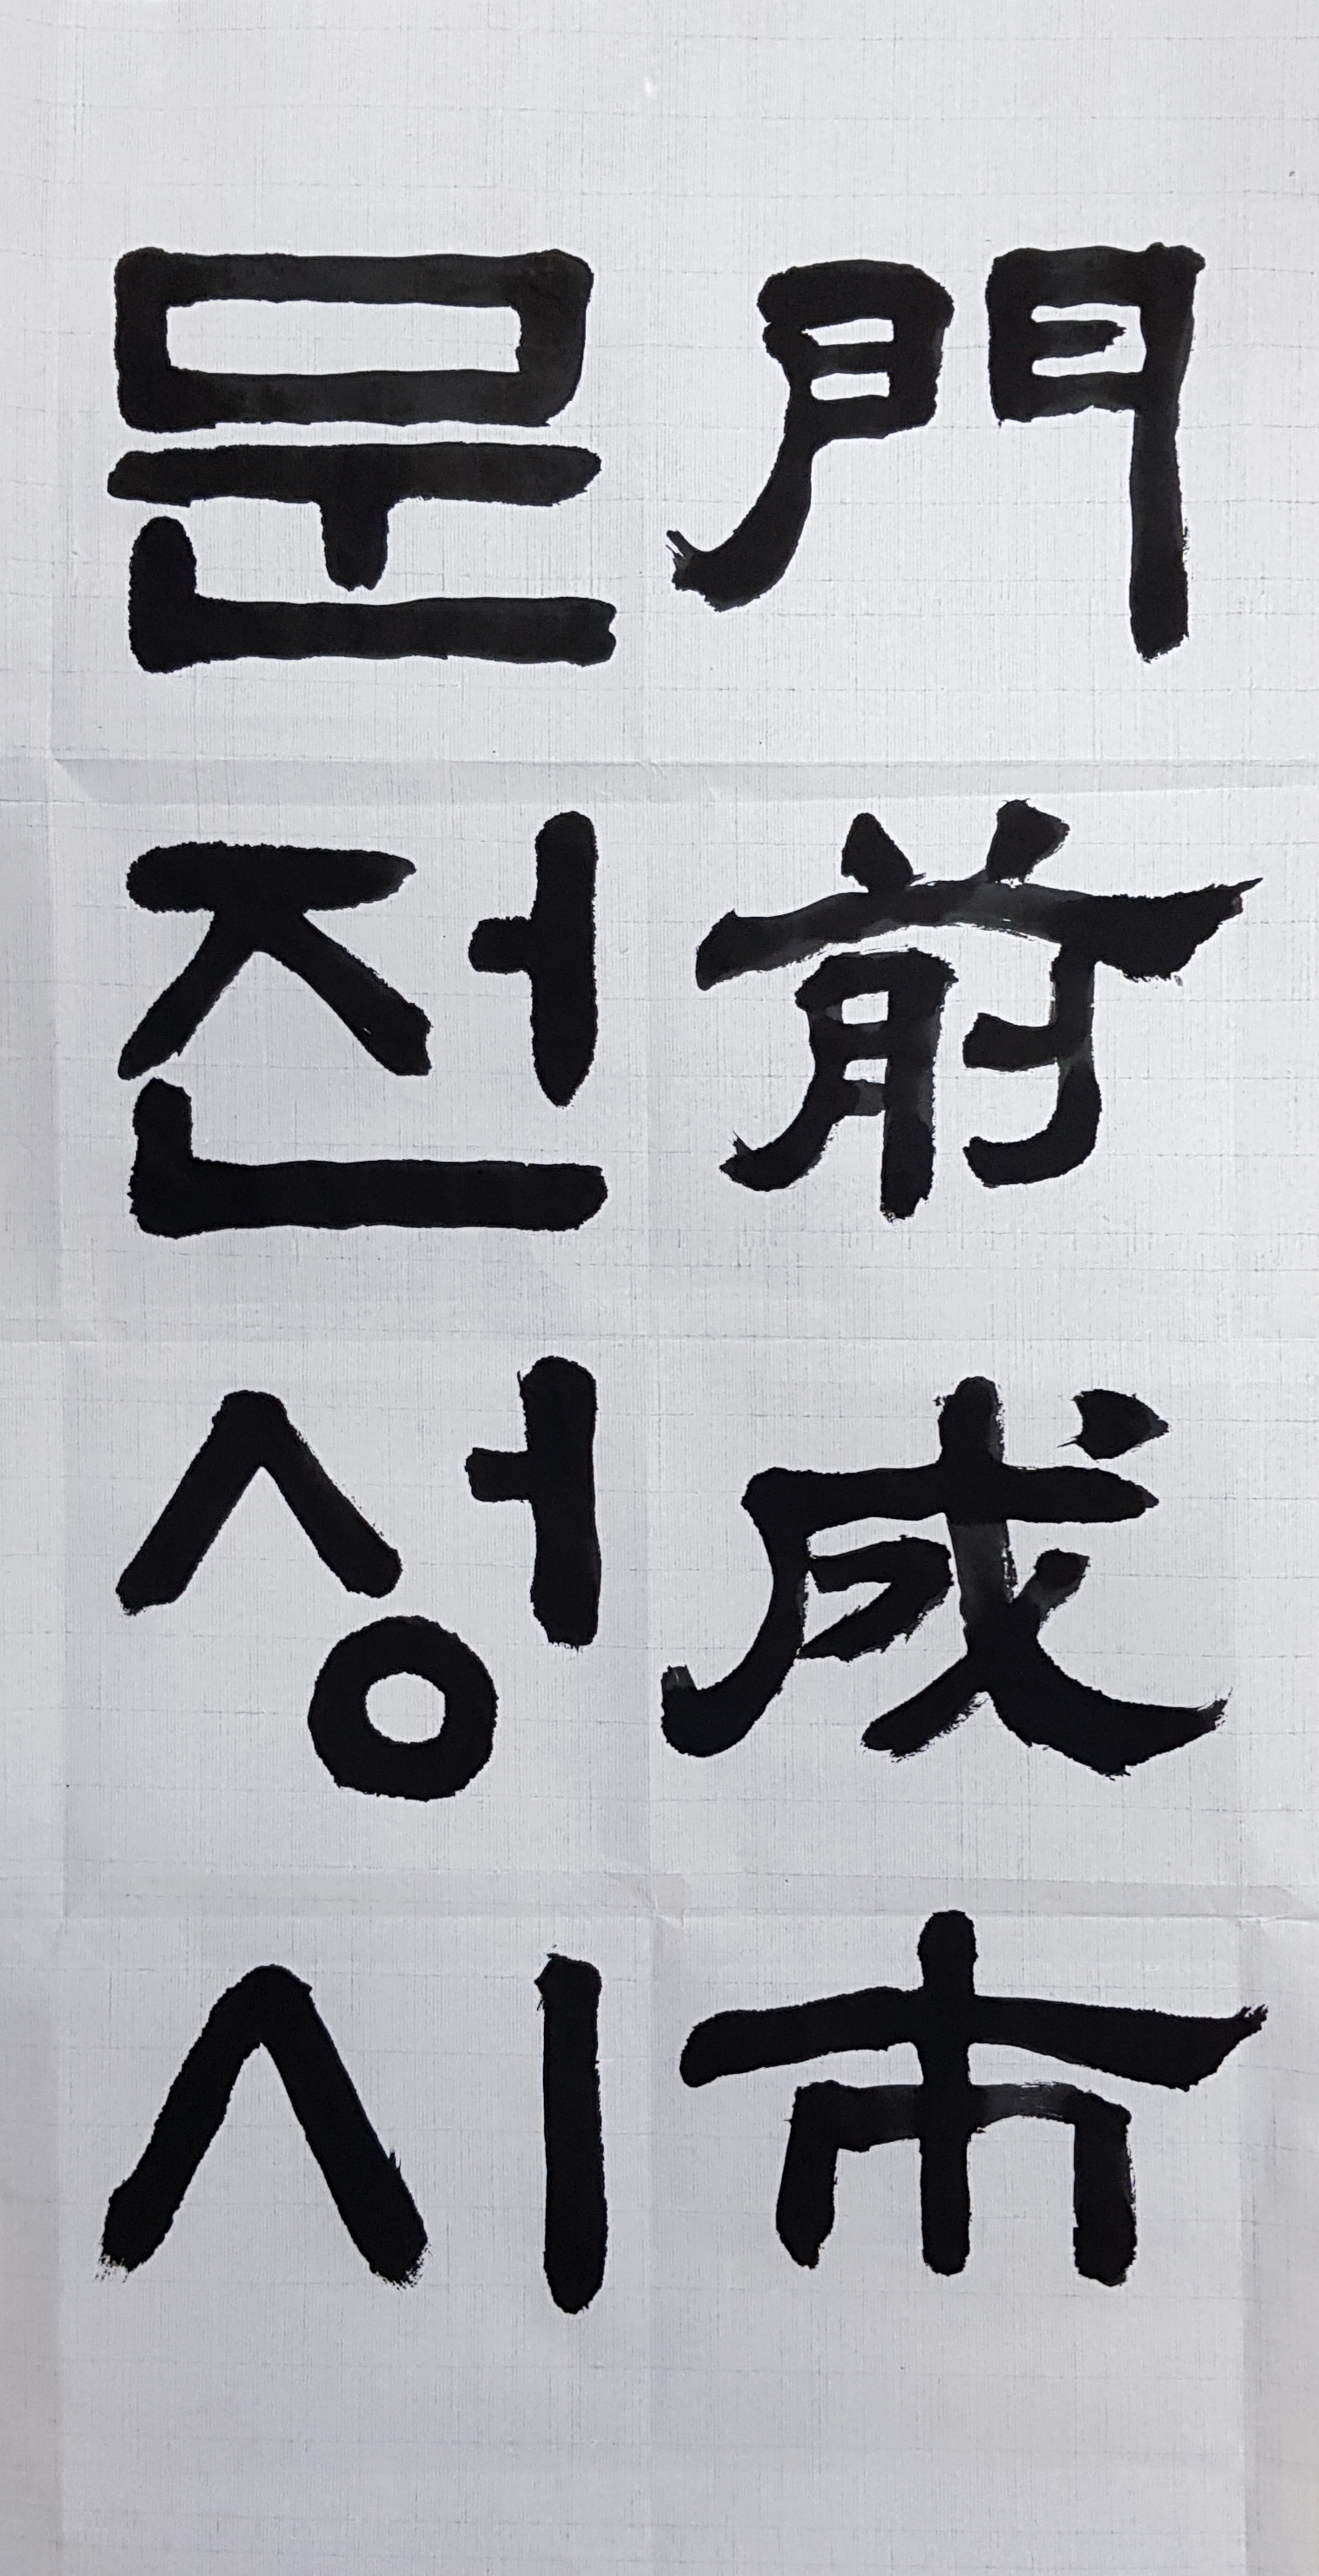 門前成市
문전성시